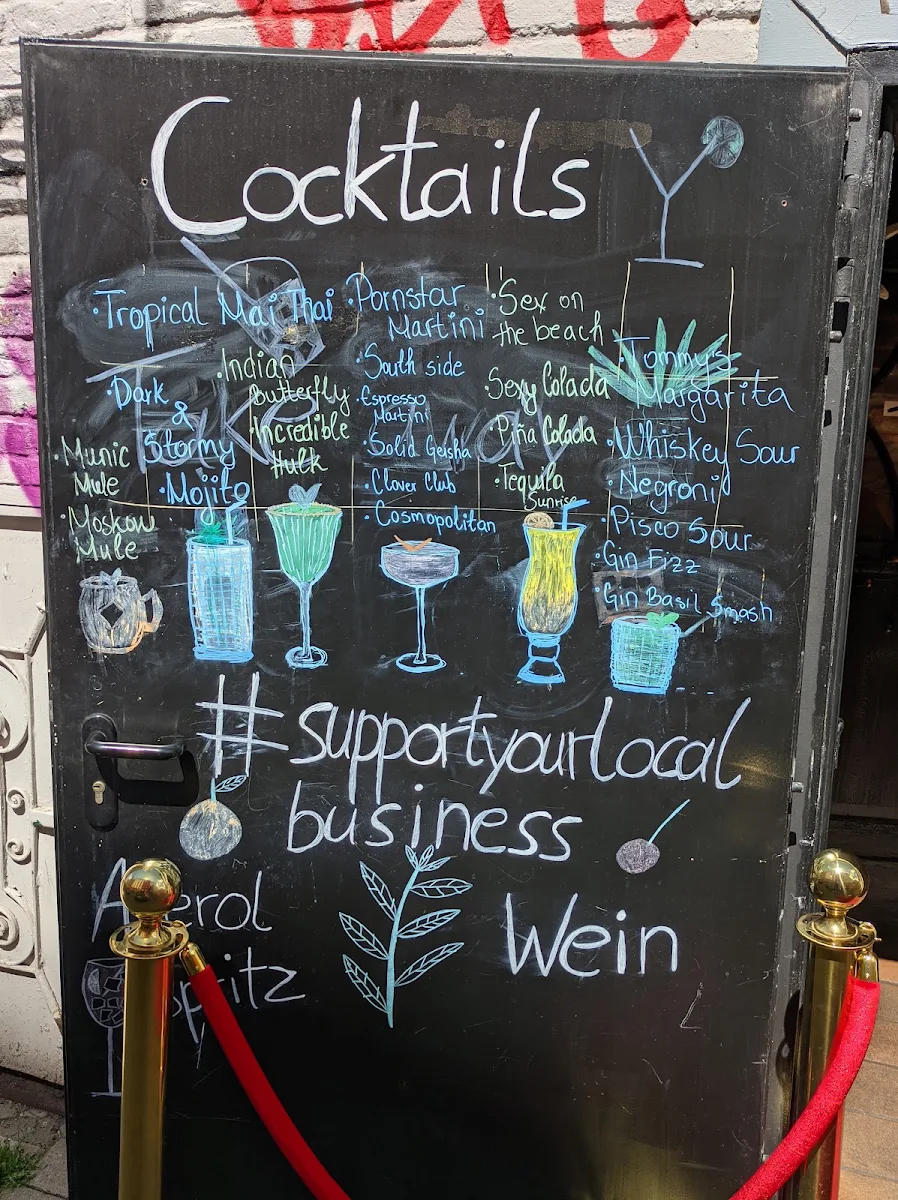 Cocktails
·Tropical Mai Thai
·Dark
&
Stormy
·Mojito
·Munic
Mule
·Moskow
Mule
·Indian
Butterfly
·Incredible
Hulk
·Pornstar
Martini
·South side
·Espresso
Martini
·Solid Geisha
·Clover Club
·Cosmopolitan
·Sex on
the beach
·Sexy Colada
·Piña Colada
·Tequila
Sunrise
·Tommy's
Margarita
·Whiskey Sour
·Negroni
·Pisco Sour
·Gin Fizz
·Gin Basil Smash
#supportyourlocal
business
Aperol
Spritz
Wein